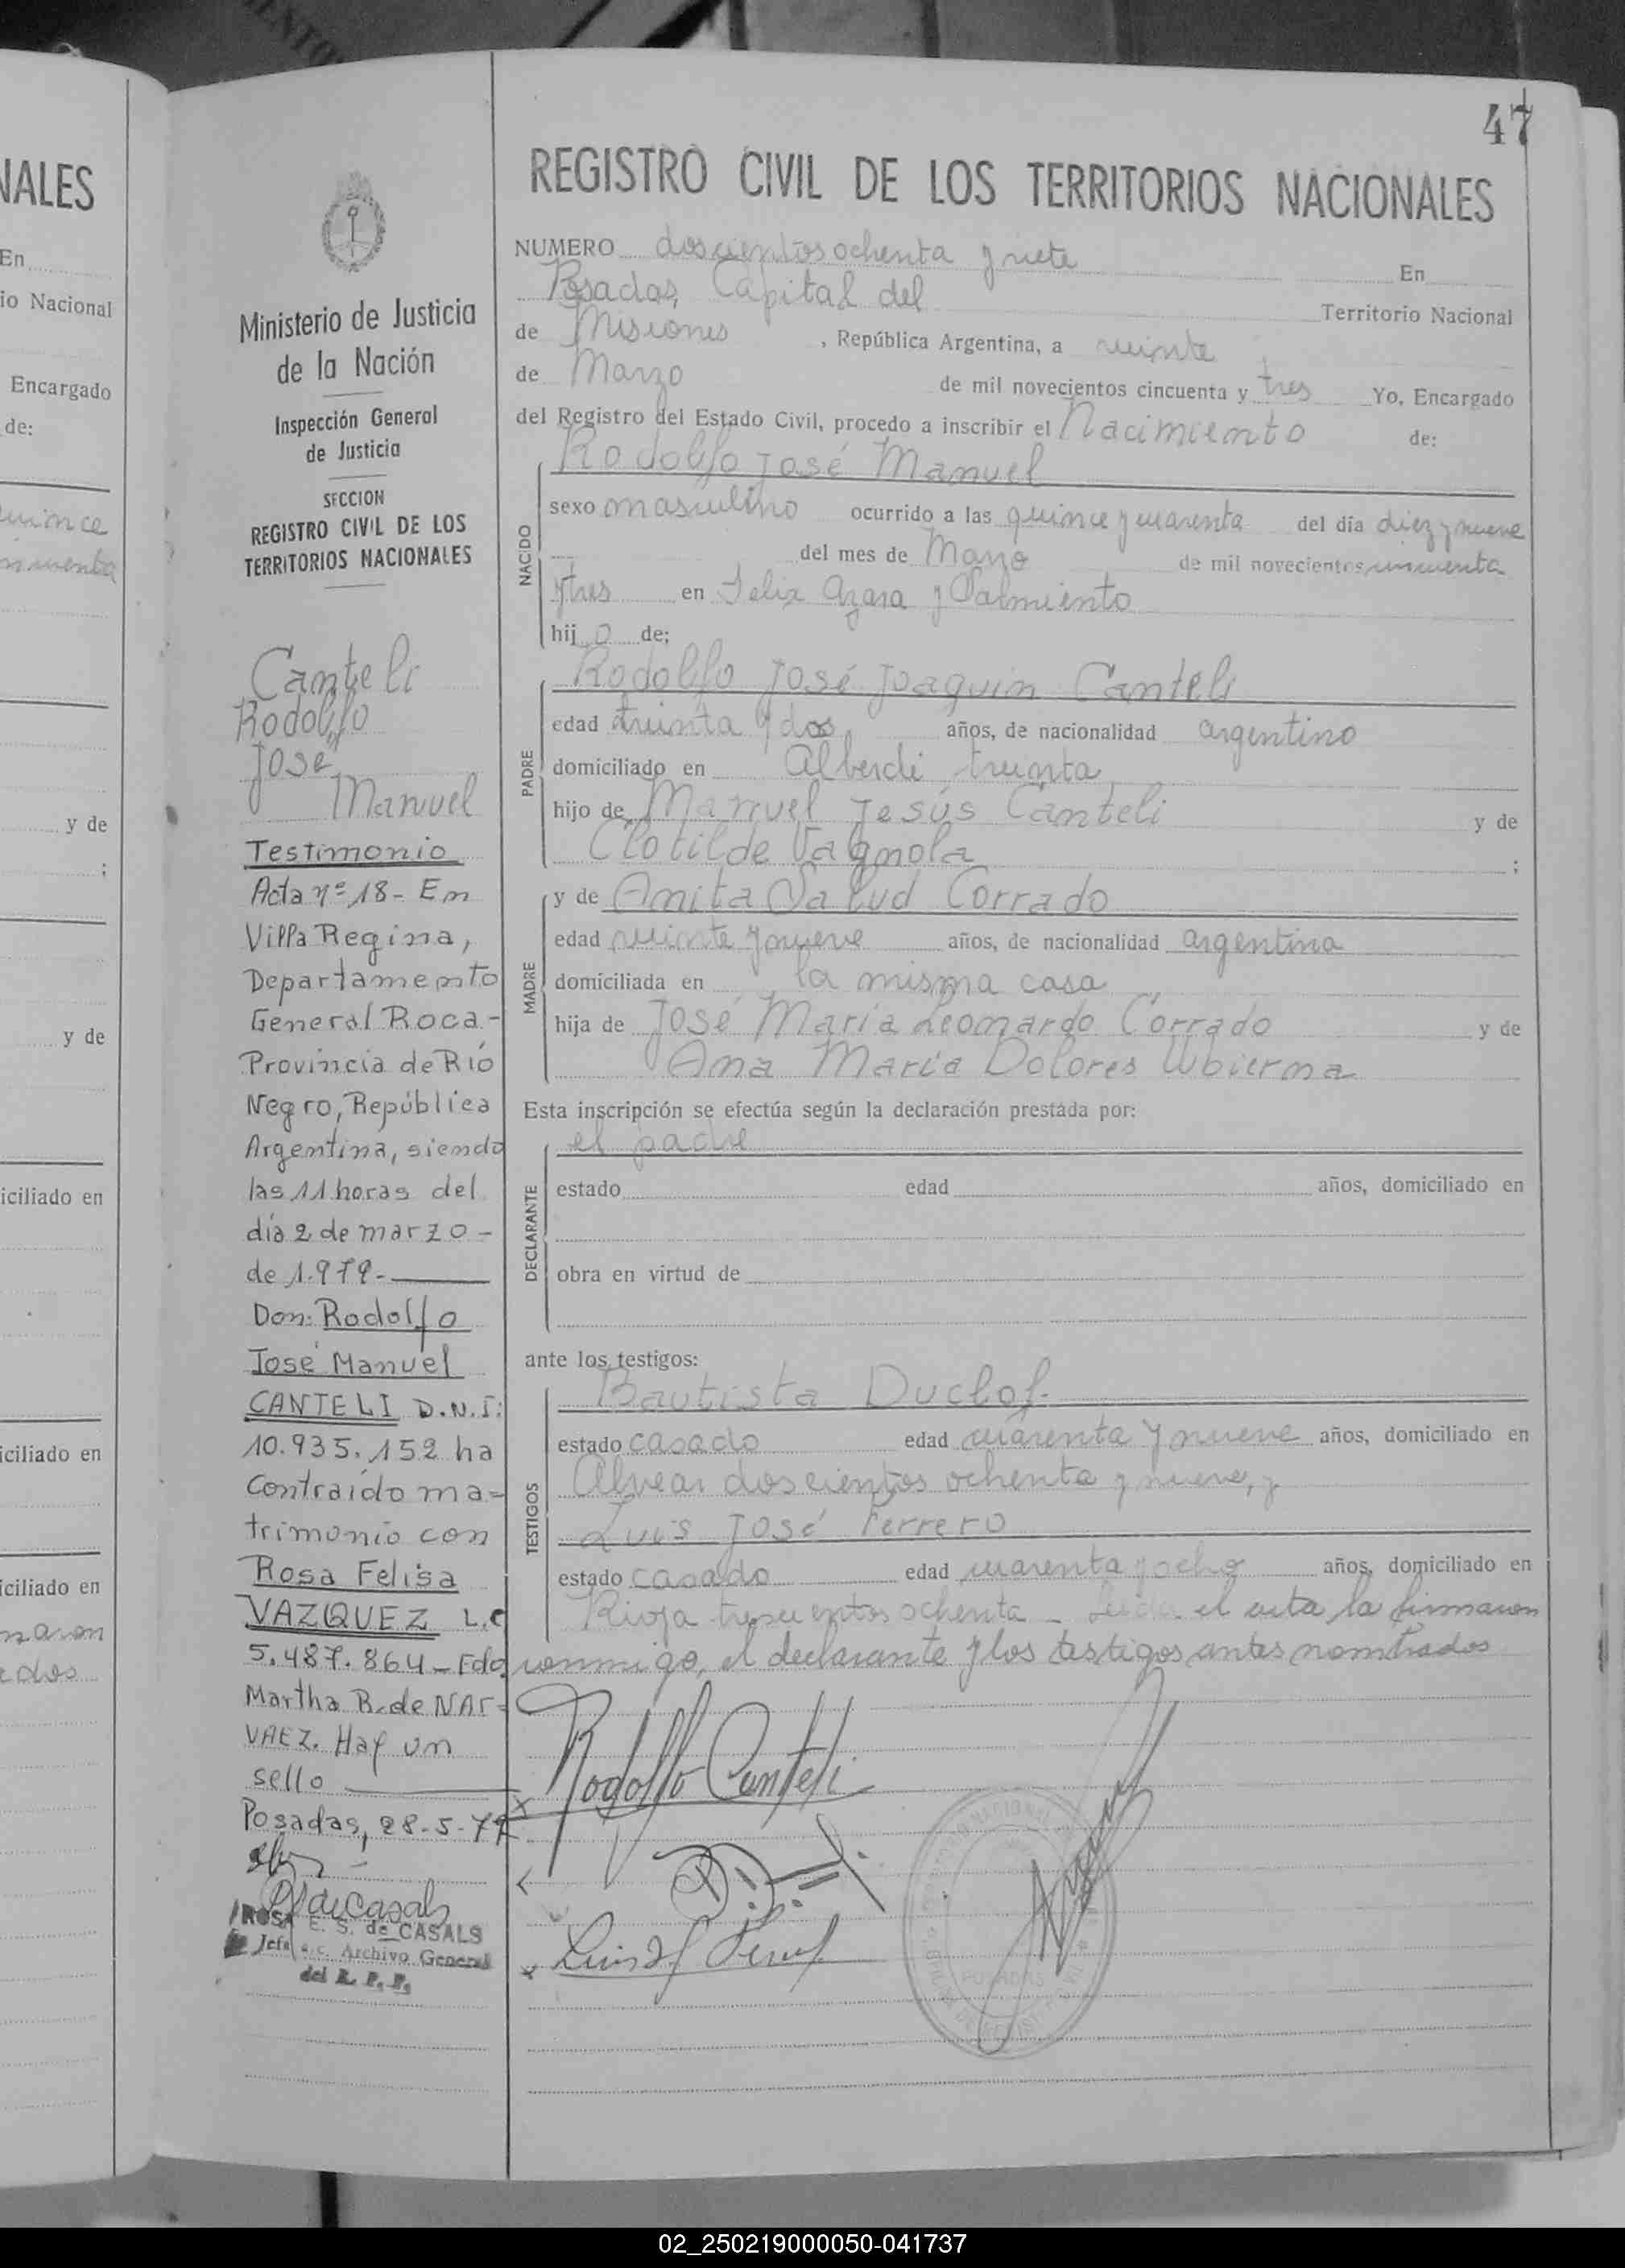 47
REGISTRO CIVIL DE LOS TERRITORIOS NACIONALES
NUMERO doscientos ochenta y siete En
Posadas, Capital del Territorio Nacional
de Misiones , República Argentina, a veinte
de Marzo de mil novecientos cincuenta y tres Yo, Encargado
del Registro del Estado Civil, procedo a inscribir el Nacimiento de:
Rodolfo José Manuel
NACIDO
sexo masculino ocurrido a las quince y cuarenta del día diez y nueve
del mes de Marzo de mil novecientos cincuenta
y tres en Felix Azara y Sarmiento
hij o de;
Rodolfo José Joaquin Canteli
PADRE
edad treinta y dos años, de nacionalidad argentino
domiciliado en Alberdi treinta
hijo de Manuel Jesús Canteli y de
Clotilde Vagnola ;
MADRE
y de Anita Salud Corrado
edad veinte y nueve años, de nacionalidad argentina
domiciliada en la misma casa
hija de José María Leonardo Corrado y de
Ana María Dolores Ubierna
Esta inscripción se efectúa según la declaración prestada por:
el padre
DECLARANTE
estado edad años, domiciliado en
obra en virtud de
ante los testigos:
Bautista Duclof.
TESTIGOS
estado casado edad cuarenta y nueve años, domiciliado en
Alvear doscientos ochenta y nueve, y
Luis José Ferrero
estado casado edad cuarenta y ocho años, domiciliado en
Rioja trescientos ochenta - Leida el acta la firmaron
conmigo, el declarante y los testigos antes nombrados
Rodolfo Canteli
Luis J Ferrero
POSADAS
Ministerio de Justicia
de la Nación
Inspección General
de Justicia
SECCION
REGISTRO CIVIL DE LOS
TERRITORIOS NACIONALES
Canteli
Rodolfo
Jose
Manuel
Testimonio
Acta nº 18 - En
Villa Regina,
Departamento
General Roca -
Provincia de Río
Negro, República
Argentina, siendo
las 11 horas del
día 2 de marzo -
de 1.979 -
Don: Rodolfo
José Manuel
CANTELI D.N.I:
10.935.152 ha
Contraído ma-
trimonio con
Rosa Felisa
VAZQUEZ L.C
5.487.864 - Fdo.
Martha B. de NAR-
VAEZ. Hay un
sello
Posadas, 28-5-79
ROSA E. S. de CASALS
Jefa a/c. Archivo General
del R. P. P.
NALES
En
io Nacional
Encargado
de:
quince
cincuenta
y de
;
y de
iciliado en
iciliado en
iciliado en
maron
ados
02_250219000050-041737